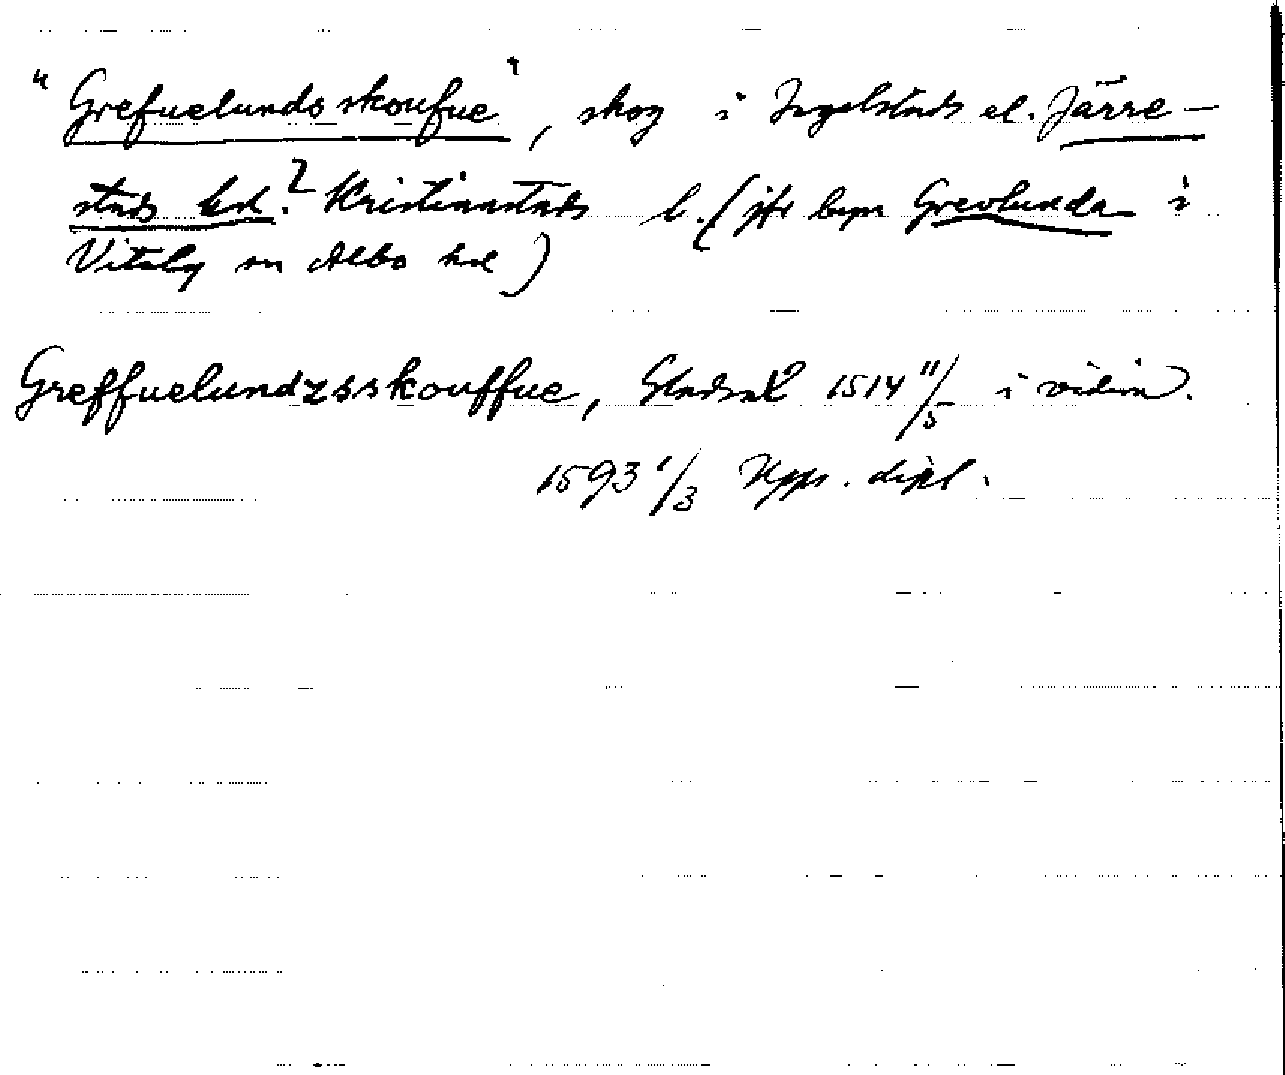 "Grefuelunds skoufue", skog i Ingelstads el. Järre-
stads hd.? Kristianstads l. (jfr byn Grevlunda i
Vitaby sn Albo hd)
Greffuelundzsskouffue, 1514 11/5 i vidim.
1593 1/3 Upps. dipl.